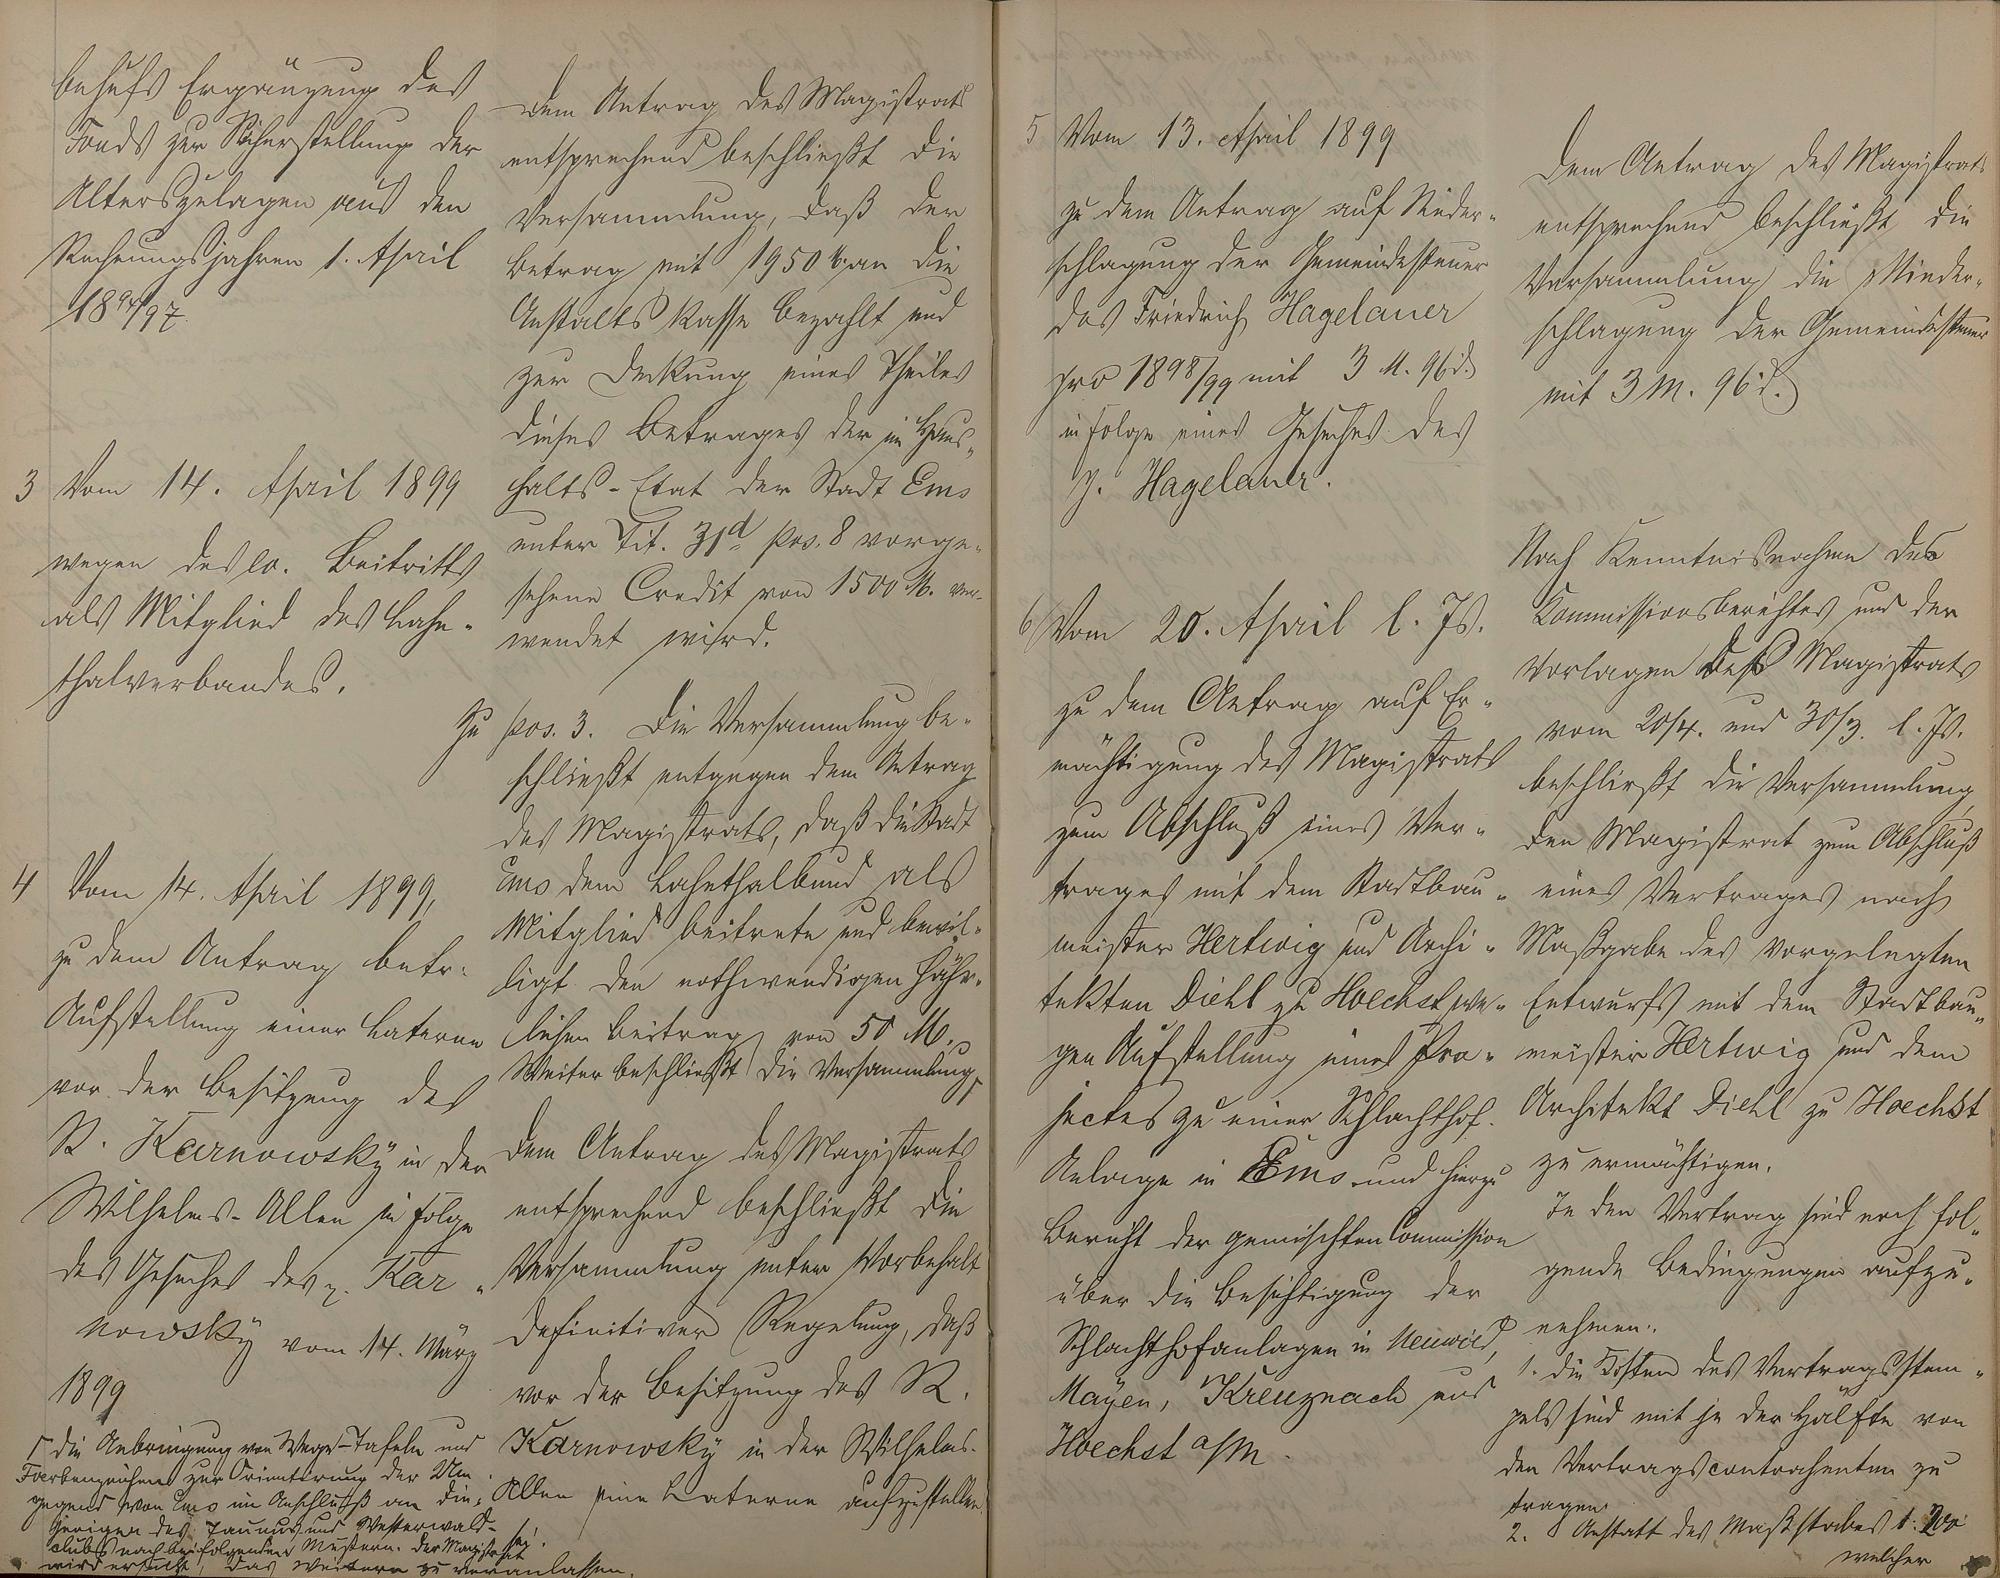 behufs Ergänzung des
Fonds zur Sicherstellung der
Alterszulagen aus den
Rechnungsjahren 1. April
1894/97.
3 Vom 14. April 1899
wegen des ev. Beitritts
als Mitglied des Lahn-
thalverbandes.
4 Vom 14. April 1899,
zu dem Antrag betr.
Aufstellung einer Laterne
vor der Besitzung des
R. Karnowsky in der
Wilhelms-Allee in Folge
des Gesuches des p. Kar-
nowsky vom 14. März
1899
Γ die Anbringung von Wege-Tafeln und
Farbenzeichen zur Orientirung der Um-
gegend von Ems im Anschluß an die-
jenigen des Taunus und Westerwald-
clubs nach beifolgenden Mustern. Der Magistrat
wird ersucht, das Weitere zu veranlassen.
Dem Antrag des Magistrats
entsprechend beschließt die
Versammlung, daß der
Betrag mit 1950 M. an die
Anstalts Kasse bezahlt und
zur Deckung eines Theiles
dieses Betrages der im Haus-
halts-Etat der Stadt Ems
unter Tit. 31d pos. 8 vorge-
sehene Credit von 1500 M. ver-
wendet wird.
Zu pos. 3. Die Versammlung be-
schließt entgegen dem Antrag
des Magistrats, daß die Stadt
Ems dem Lahnthalbund als
Mitglied beitrete und bewil-
ligt den nothwendigen jähr-
lichen Beitrag von 50 M.
Weiter beschließt die Versammlung Γ
Dem Antrag des Magistrats
entsprechend beschließt die
Versammlung unter Vorbehalt
definitiver Regelung, daß
vor der Besitzung des R.
Karnowsky in der Wilhelms-
Allee eine Laterne aufzustellen
sei.
5 Vom 13. April 1899
zu dem Antrag auf Nieder-
schlagung der Gemeindesteuer
des Friedrich Hagelauer
pro 1898/99 mit 3 M. 96 d.
in Folge eines Gesuches des
p. Hagelauer.
6 Vom 20. April l. Js.
zu dem Antrag auf Er-
mächtigung des Magistrats
zum Abschluß eines Ver-
trages mit dem Stadtbau-
meister Hertwig und Archi-
tekten Diehl zu Hoechst we-
gen Aufstellung eines Pro-
jectes zu einer Schlachthof-
Anlage in Ems und hierzu
Bericht der gemischten Commission
über die Besichtigung der
Schlachthofanlagen in Neuwied,
Mayen, Kreuznach und
Hoechst a/M.
Dem Antrag des Magistrats
entsprechend beschließt die
Versammlung die Nieder-
schlagung der Gemeindesteuer
mit 3 M. 96 d.
Nach Kenntnisnahme des
Kommissionsberichtes und der
Vorlagen des Magistrats
vom 20/4. und 30/3. l. Js.
beschließt die Versammlung
den Magistrat zum Abschluß
eines Vertrages nach
Maßgabe des vorgelegten
Entwurfs mit dem Stadtbau-
meister Hertwig und dem
Architekt Diehl zu Hoechst
zu ermächtigen.
In den Vertrag sind noch fol-
gende Bedingungen aufzu-
nehmen:
1. Die Kosten des Vertragsstem-
pels sind mit je der Hälfte von
den Vertragscontrahenten zu
tragen.
2. Anstatt des Maßstabes 1:200
welcher